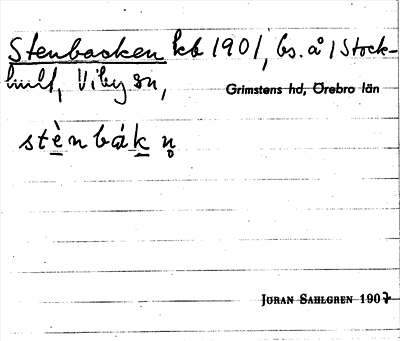 Stenbacken kb 1901, bs. å 1 Stock-
hult, Viby sn,
Grimstens hd, Örebro län
stènbák n̥
JÖRAN SAHLGREN 1907